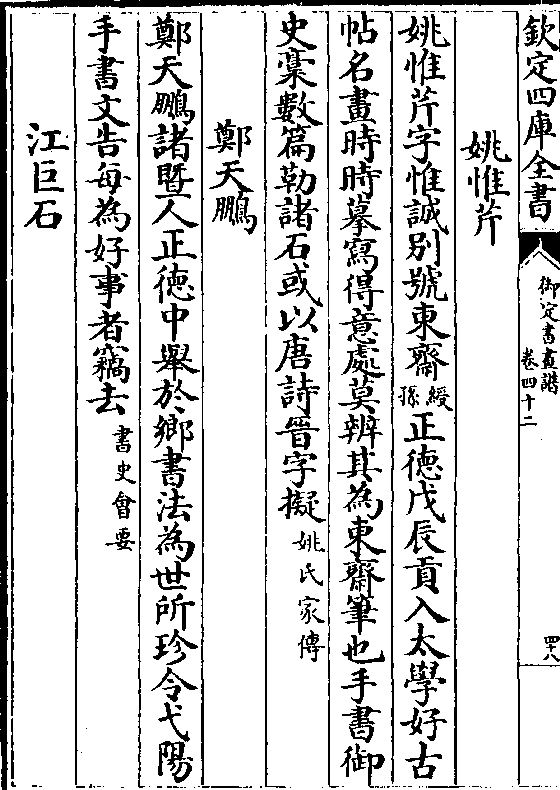 欽定四庫全書
御定書畫譜
卷四十二
四十八
姚惟芹
姚惟芹字惟誠別號東齋綬孫正德戊辰貢入太學好古
帖名畫時時摹寫得意處莫辨其為東齋筆也手書御
史稾數篇勒諸石或以唐詩晉字擬姚氏家傳
鄭天鵬
鄭天鵬諸暨人正德中舉於鄉書法為世所珍令弋陽
手書文告每為好事者竊去書史會要
江巨石